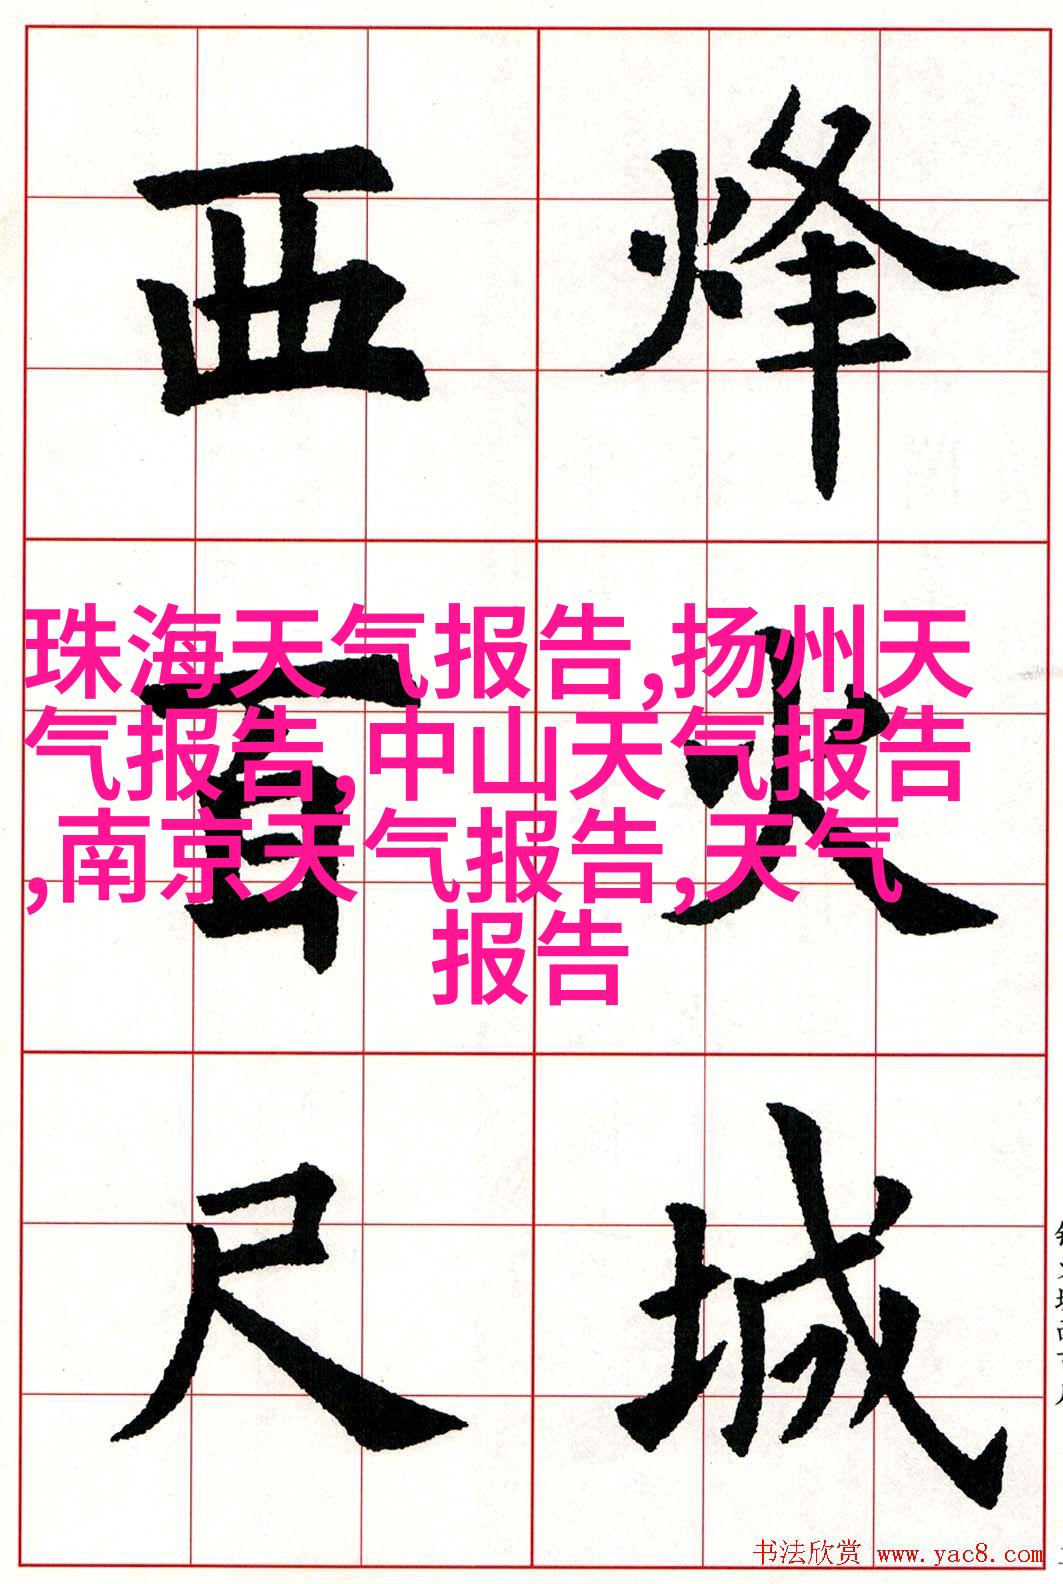 烽火城
西百尺
珠海天气报告,扬州天
气报告,中山天气报告
,南京天气报告,天气
报告
书法欣赏 www.yac8.com